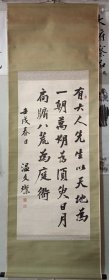 有大人先生以天地為
一朝萬期為須臾日月
扃牖八荒為庭衢
壬戌春日